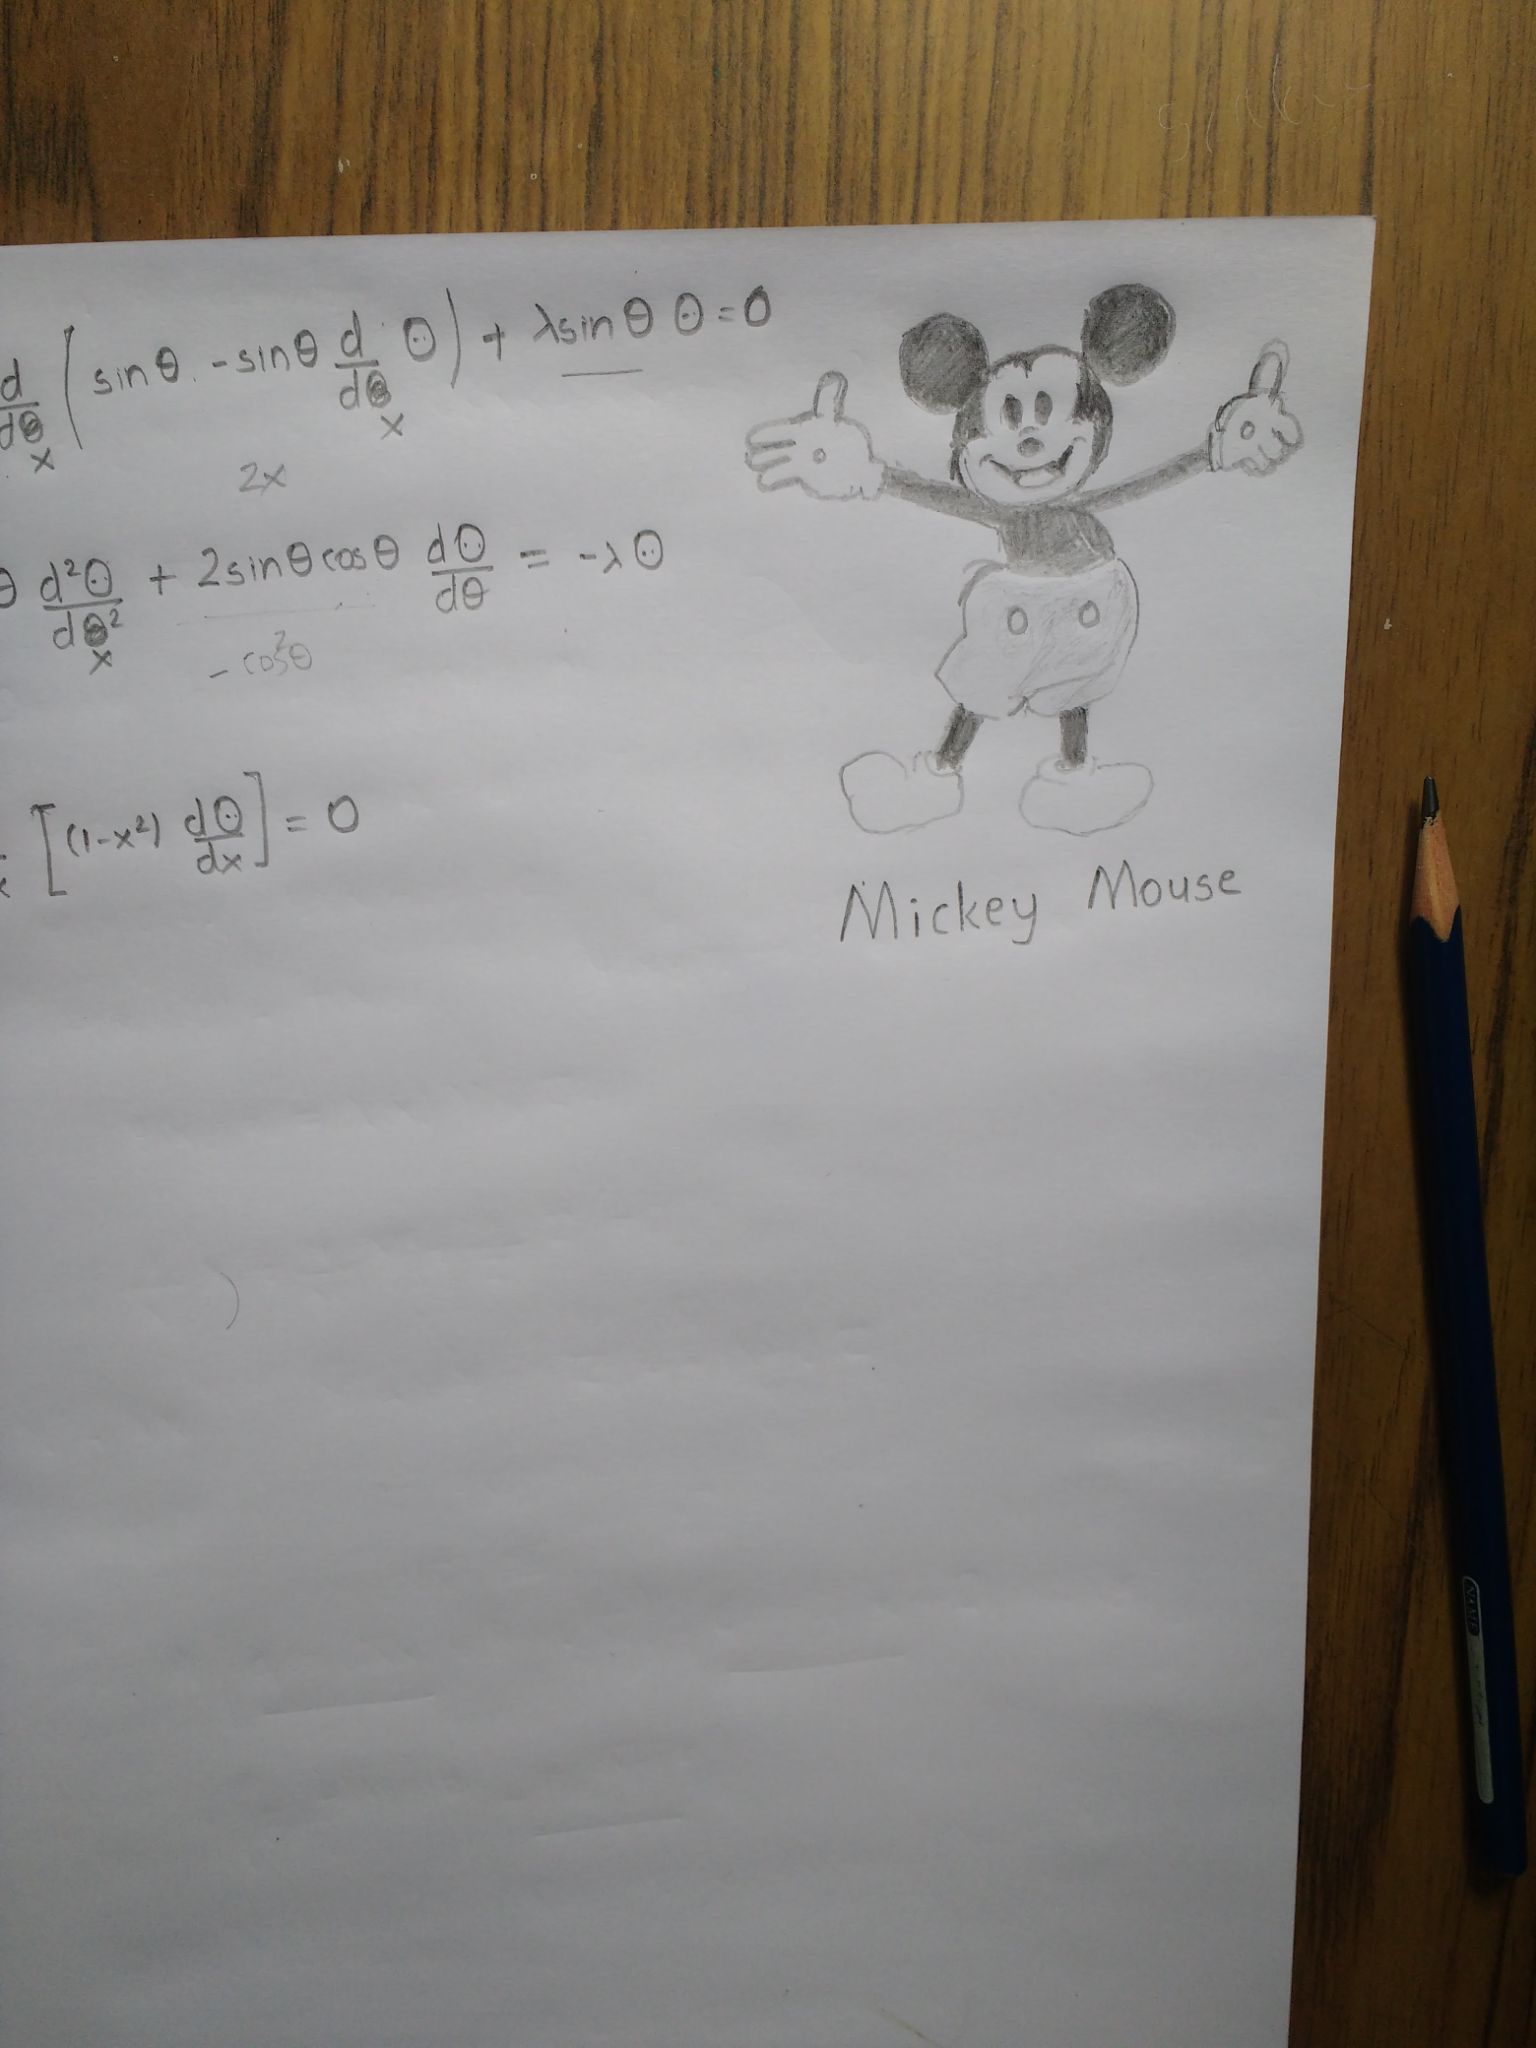 d/dθ ( sinθ . -sinθ d/dθ Θ ) + λsinθ Θ = 0
x x
2x
θ d²Θ/dθ² + 2sinθcosθ dΘ/dθ = -λΘ
x - cos²θ
[(1-x²) dΘ/dx] = 0
Mickey Mouse
NAME